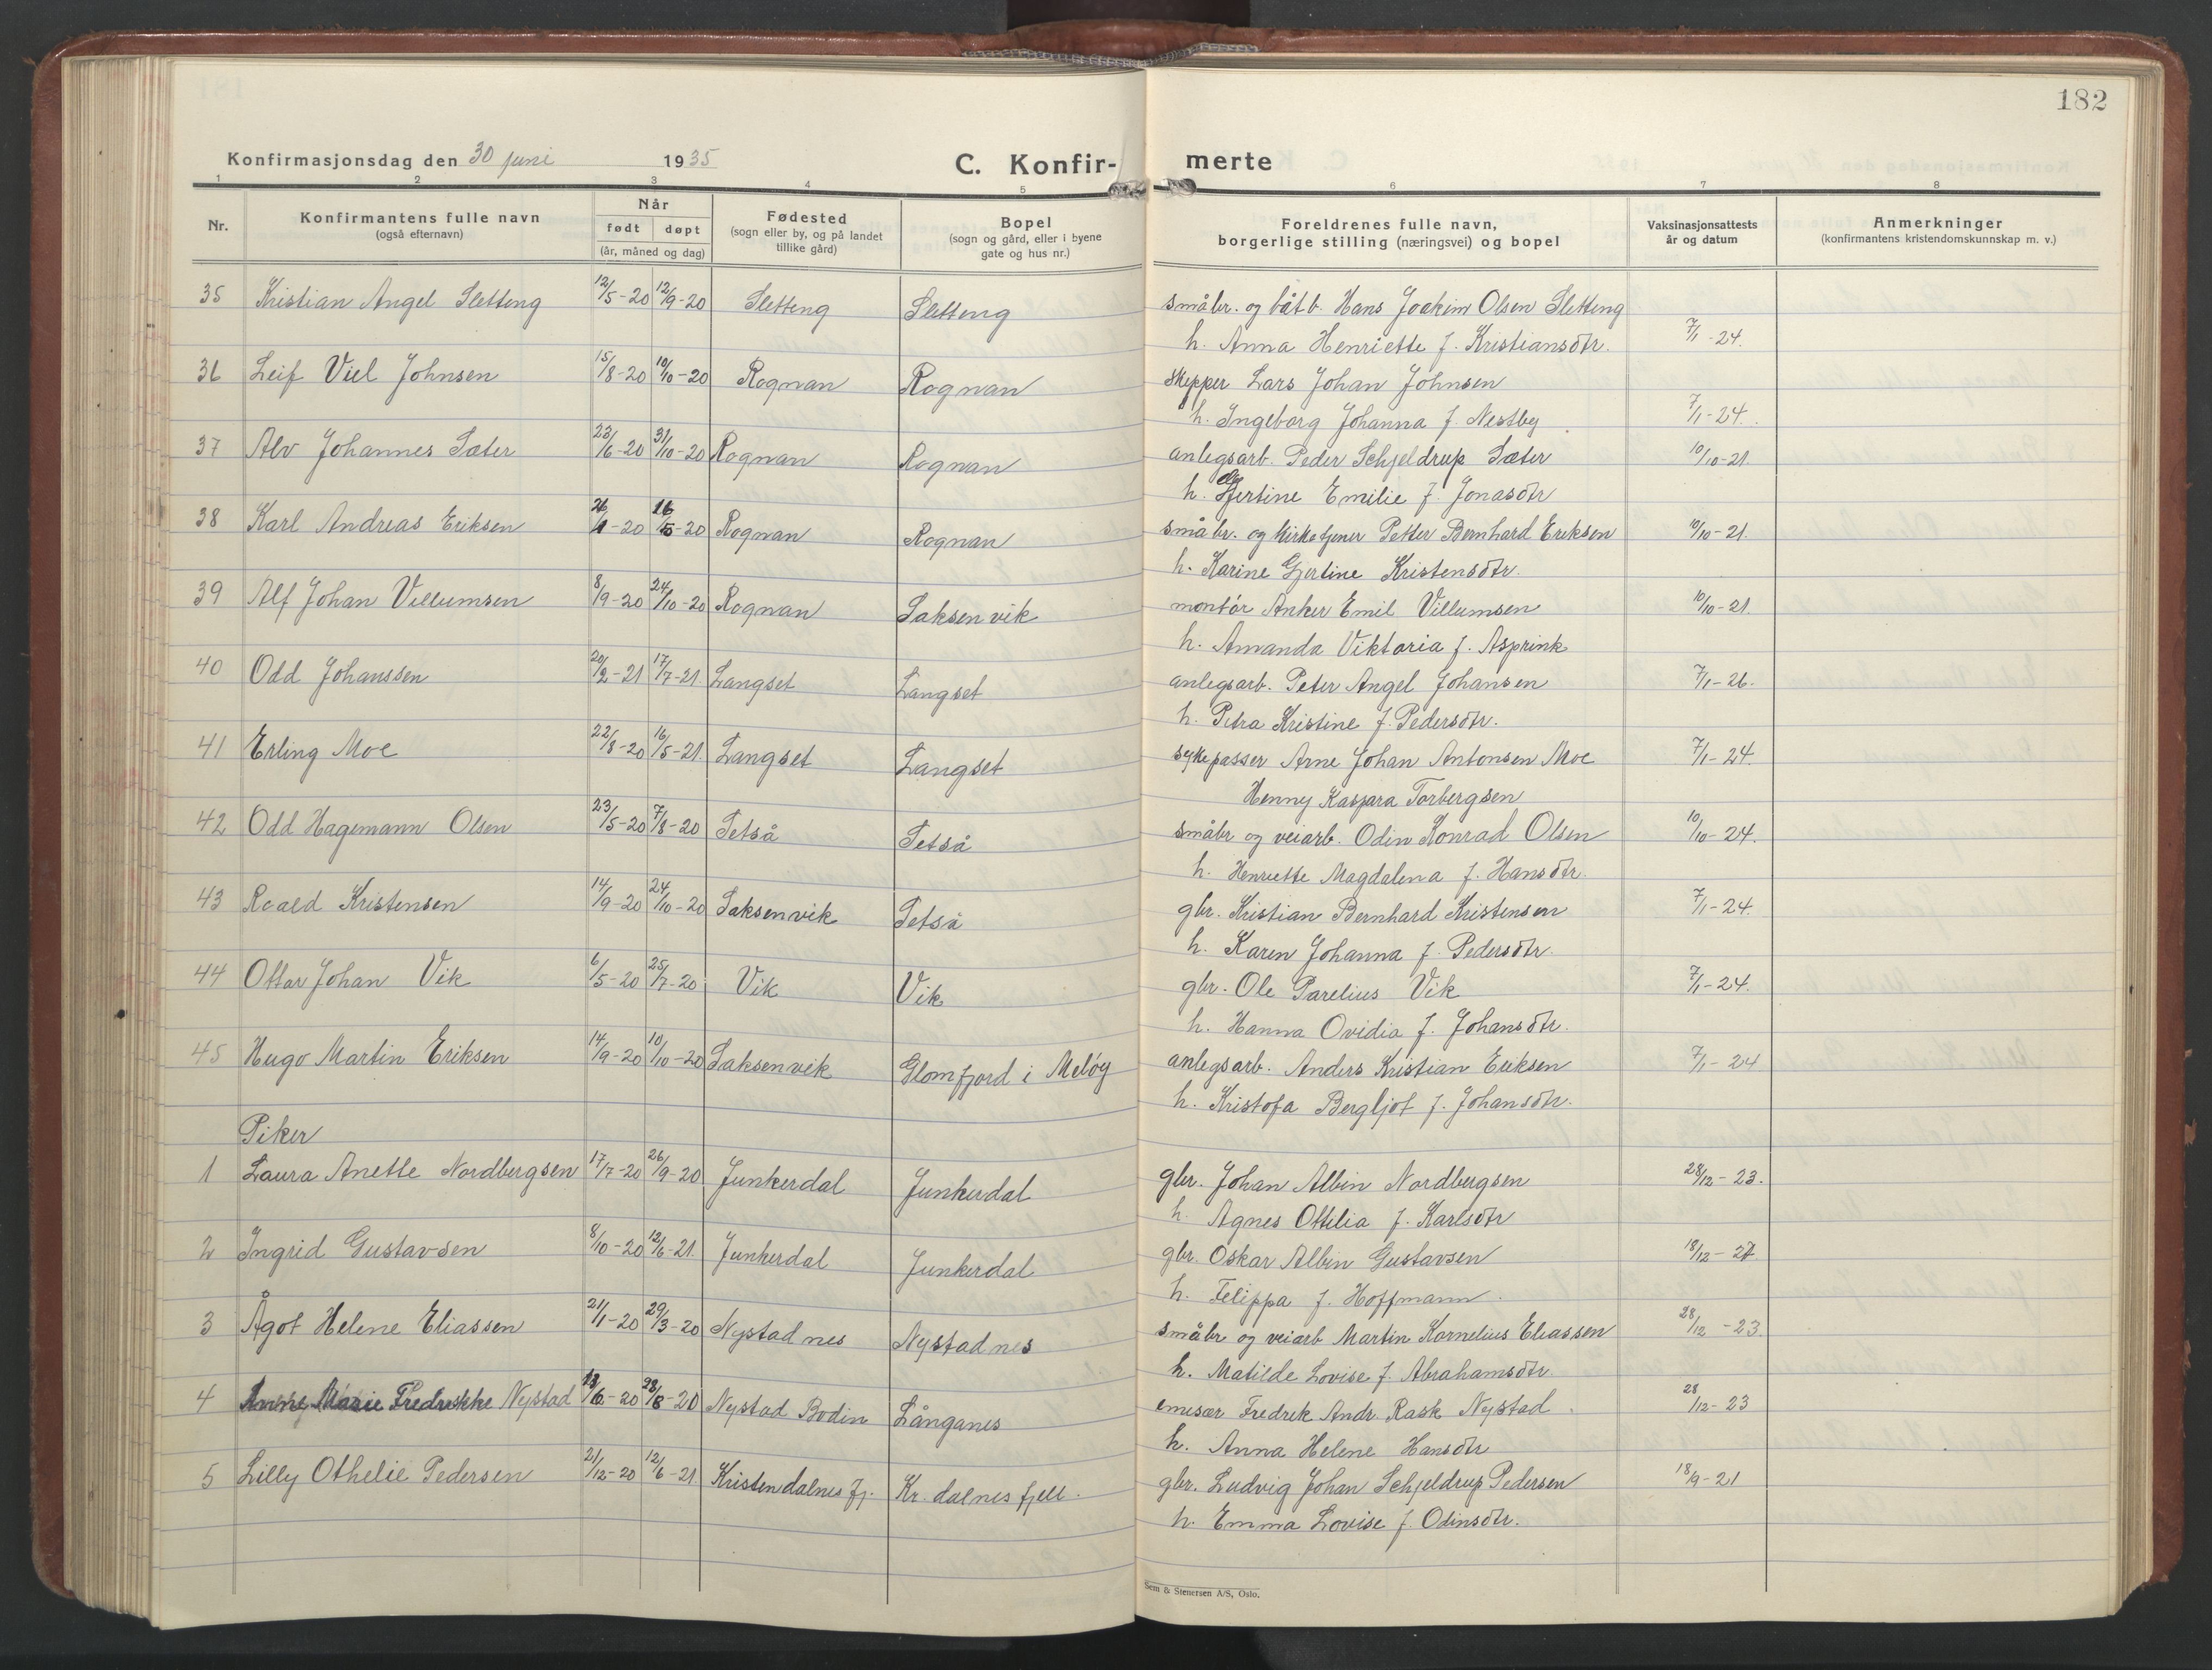 182
Konfirmasjonsdag den 30 juni 1935
C. Konfir- merte
1 2 3 4 5 6 7 8
Nr.
Konfirmantens fulle navn
(også efternavn)
Når
født døpt
(år, måned og dag)
Fødested
(sogn eller by, og på landet
tillike gård)
Bopel
(sogn og gård, eller i byene
gate og hus nr.)
Foreldrenes fulle navn,
borgerlige stilling (næringsvei) og bopel
Vaksinasjonsattests
år og datum
Anmerkninger
(konfirmantens kristendomskunnskap m. v.)
35 Kristian Angel Sletteng 12/5-20 12/9-20 Sletteng Sletteng småbr. og båtb. Hans Joakim Olsen Sletteng
h. Anna Henriette f. Kristiansdtr. 7/1-24.
36 Leif Viel Johnsen 15/8-20 10/10-20 Rognan Rognan skipper Lars Johan Johnsen
h. Ingeborg Johanna f. Nestby 7/1-24.
37 Alv Johannes Sæter 23/6-20 31/10-20 Rognan Rognan anlegsarb. Peder Schjeldrup Sæter 10/10-21.
h. Emilie f. Jonasdtr
38 Karl Andreas Eriksen 26/1-20 16/5-20 Rognan Rognan småbr. og kirketjener Petter Bernhard Eriksen 10/10-21.
h. Karine Gjertine Kristensdtr.
39 Alf Johan Villumsen 8/9-20 24/10-20 Rognan Saksenvik montør Anker Emil Villumsen 10/10-21.
h. Amanda Viktoria f. Asprink
40 Odd Johanssen 20/2-21 17/7-21. Langset Langset anlegsarb. Peter Angel Johansen 7/1-26.
h. Petra Kristine f. Pedersdtr.
41 Erling Moe 22/8-20 16/5-21. Langset Langset sykepasser Arne Johan Antonsen Moe 7/1-24.
Henny Kaspara Torbergsen
42 Odd Hagemann Olsen 23/5-20 7/8-20 Setså Setså småbr og veiarb. Odin Konrad Olsen 10/10-24.
h. Henriette Magdalena f. Hansdtr.
43 Roald Kristensen 14/9-20 24/10-20 Saksenvik Setså gbr. Kristian Bernhard Kristensen 7/1-24.
h. Karen Johanna f. Pedersdtr.
44 Ottar Johan Vik 6/5-20 25/7-20 Vik Vik gbr. Ole Parelius Vik 7/1-24.
h. Hanna Ovidia f. Johansdtr.
45 Hugo Martin Eriksen 14/9-20 10/10-20 Saksenvik Glomfjord i Meløy anlegsarb. Anders Kristian Eriksen 7/1-24
h. Kristofa Bergljot f. Johansdtr.
Piker
1 Laura Anette Nordbergsen 17/7-20 26/9-20 Junkerdal Junkerdal gbr. Johan Albin Nordbergsen 28/12-23.
h. Agnes Ottilia f. Karlsdtr
2 Ingrid Gustavsen 8/10-20 12/6-21. Junkerdal Junkerdal gbr. Oskar Albin Gustavsen 18/12-27
h. Felippa f. Hoffmann.
3 Ågot Helene Eliassen 21/1-20 29/3-20 Nystadnes Nystadnes småbr og veiarb Martin Kornelius Eliassen 28/12-23.
h. Matilde Lovise f. Abrahamsdtr.
4 Anne Marie Fredrikke Nystad 13/6-20 28/8-20 Nystad Bodin Långanes emisær Fredrik Andr. Rask Nystad. 28/12-23
h. Anna Helene Hansdtr
5 Lilly Othelie Pedersen 21/12-20 12/6-21. Kristendalnes fj. Kr. dalnes fjell. gbr. Ludvig Johan Schjeldrup Pedersen 18/9-21
h. Emma Lovise f Odinsdtr.
Sem & Stenersen A/S, Oslo.